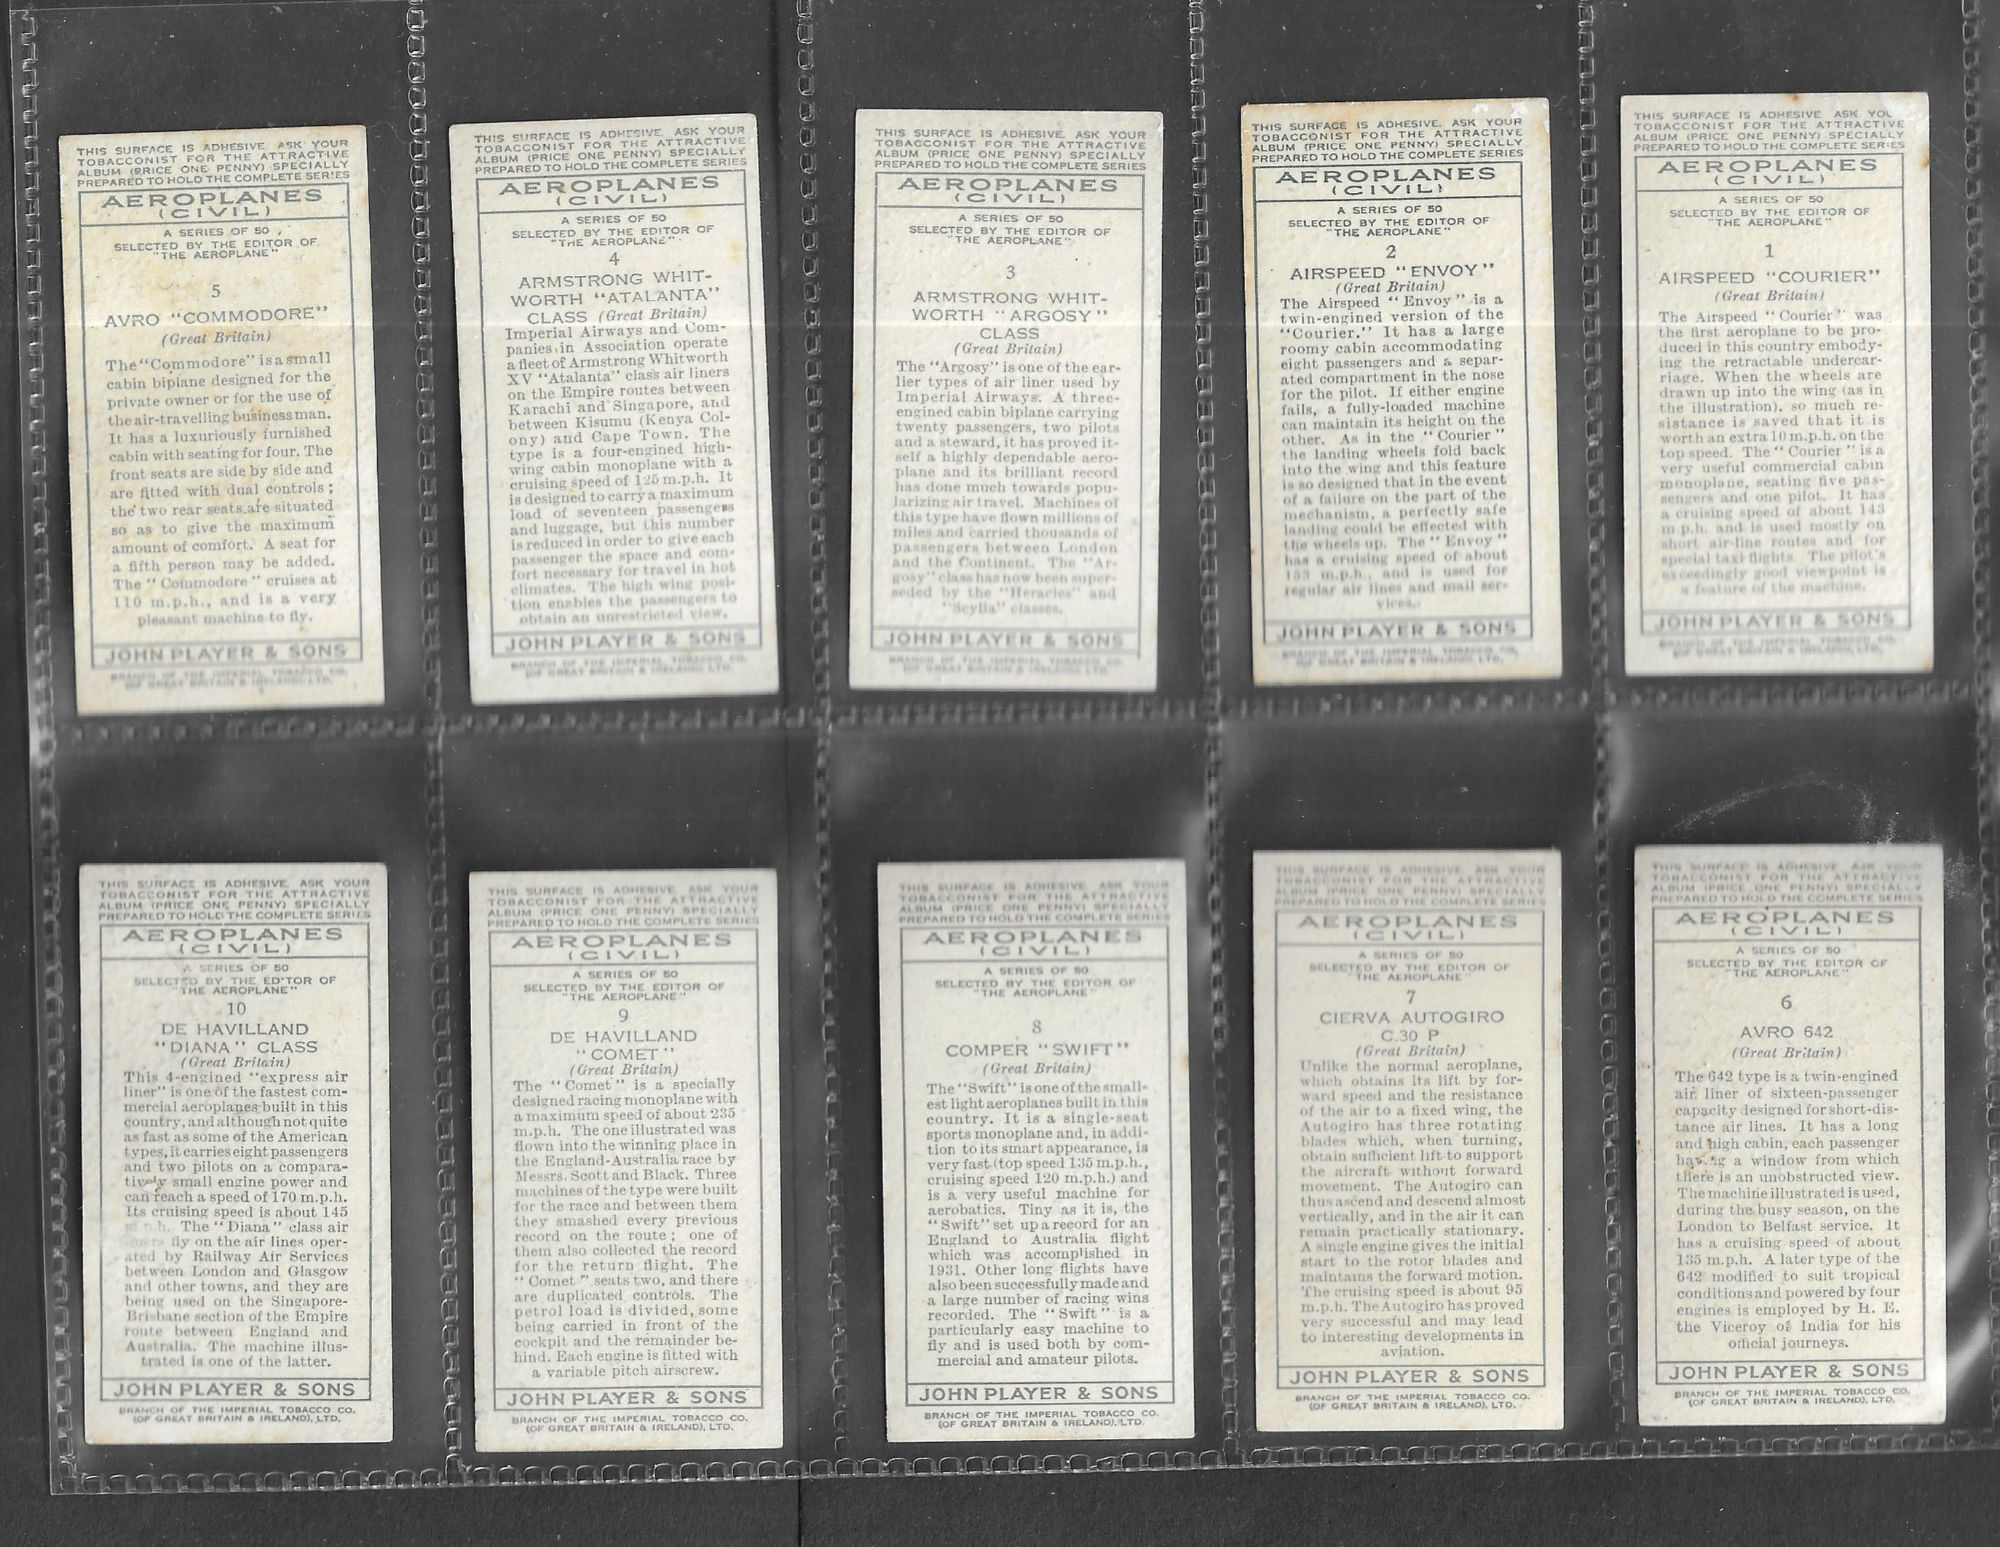 THIS SURFACE IS ADHESIVE. ASK YOUR
TOBACCONIST FOR THE ATTRACTIVE
ALBUM (PRICE ONE PENNY) SPECIALLY
PREPARED TO HOLD THE COMPLETE SERIES
AEROPLANES
(CIVIL)
A SERIES OF 50
SELECTED BY THE EDITOR OF
"THE AEROPLANE"
5
AVRO "COMMODORE"
(Great Britain)
The "Commodore" is a small
cabin biplane designed for the
private owner or for the use of
the air-travelling business man.
It has a luxuriously furnished
cabin with seating for four. The
front seats are side by side and
are fitted with dual controls;
the two rear seats are situated
so as to give the maximum
amount of comfort. A seat for
a fifth person may be added.
The "Commodore" cruises at
110 m.p.h., and is a very
pleasant machine to fly.
JOHN PLAYER & SONS
BRANCH OF THE IMPERIAL TOBACCO CO.
(OF GREAT BRITAIN & IRELAND), LTD.
THIS SURFACE IS ADHESIVE. ASK YOUR
TOBACCONIST FOR THE ATTRACTIVE
ALBUM (PRICE ONE PENNY) SPECIALLY
PREPARED TO HOLD THE COMPLETE SERIES
AEROPLANES
(CIVIL)
A SERIES OF 50
SELECTED BY THE EDITOR OF
"THE AEROPLANE"
4
ARMSTRONG WHIT-
WORTH "ATALANTA"
CLASS (Great Britain)
Imperial Airways and Com-
panies in Association operate
a fleet of Armstrong Whitworth
XV "Atalanta" class air liners
on the Empire routes between
Karachi and Singapore, and
between Kisumu (Kenya Col-
ony) and Cape Town. The
type is a four-engined high-
wing cabin monoplane with a
cruising speed of 125 m.p.h. It
is designed to carry a maximum
load of seventeen passengers
and luggage, but this number
is reduced in order to give each
passenger the space and com-
fort necessary for travel in hot
climates. The high wing posi-
tion enables the passengers to
obtain an unrestricted view.
JOHN PLAYER & SONS
BRANCH OF THE IMPERIAL TOBACCO CO.
(OF GREAT BRITAIN & IRELAND), LTD.
THIS SURFACE IS ADHESIVE. ASK YOUR
TOBACCONIST FOR THE ATTRACTIVE
ALBUM (PRICE ONE PENNY) SPECIALLY
PREPARED TO HOLD THE COMPLETE SERIES
AEROPLANES
(CIVIL)
A SERIES OF 50
SELECTED BY THE EDITOR OF
"THE AEROPLANE"
3
ARMSTRONG WHIT-
WORTH "ARGOSY"
CLASS
(Great Britain)
The "Argosy" is one of the ear-
lier types of air liner used by
Imperial Airways. A three-
engined cabin biplane carrying
twenty passengers, two pilots
and a steward, it has proved it-
self a highly dependable aero-
plane and its brilliant record
has done much towards popu-
larizing air travel. Machines of
this type have flown millions of
miles and carried thousands of
passengers between London
and the Continent. The "Ar-
gosy" class has now been super-
seded by the "Heracles" and
"Scylla" classes.
JOHN PLAYER & SONS
BRANCH OF THE IMPERIAL TOBACCO CO.
(OF GREAT BRITAIN & IRELAND), LTD.
THIS SURFACE IS ADHESIVE. ASK YOUR
TOBACCONIST FOR THE ATTRACTIVE
ALBUM (PRICE ONE PENNY) SPECIALLY
PREPARED TO HOLD THE COMPLETE SERIES
AEROPLANES
(CIVIL)
A SERIES OF 50
SELECTED BY THE EDITOR OF
"THE AEROPLANE"
2
AIRSPEED "ENVOY"
(Great Britain)
The Airspeed "Envoy" is a
twin-engined version of the
"Courier." It has a large
roomy cabin accommodating
eight passengers and a separ-
ated compartment in the nose
for the pilot. If either engine
fails, a fully-loaded machine
can maintain its height on the
other. As in the "Courier"
the landing wheels fold back
into the wing and this feature
is so designed that in the event
of a failure on the part of the
mechanism, a perfectly safe
landing could be effected with
the wheels up. The "Envoy"
has a cruising speed of about
153 m.p.h., and is used for
regular air lines and mail ser-
vices.
JOHN PLAYER & SONS
BRANCH OF THE IMPERIAL TOBACCO CO.
(OF GREAT BRITAIN & IRELAND), LTD.
THIS SURFACE IS ADHESIVE. ASK YOU
TOBACCONIST FOR THE ATTRACTIVE
ALBUM (PRICE ONE PENNY) SPECIALLY
PREPARED TO HOLD THE COMPLETE SERIES
AEROPLANES
(CIVIL)
A SERIES OF 50
SELECTED BY THE EDITOR OF
"THE AEROPLANE"
1
AIRSPEED "COURIER"
(Great Britain)
The Airspeed "Courier" was
the first aeroplane to be pro-
duced in this country embody-
ing the retractable undercar-
riage. When the wheels are
drawn up into the wing (as in
the illustration), so much re-
sistance is saved that it is
worth an extra 10 m.p.h. on the
top speed. The "Courier" is a
very useful commercial cabin
monoplane, seating five pas-
sengers and one pilot. It has
a cruising speed of about 143
m.p.h. and is used mostly on
short air-line routes and for
special taxi flights. The pilot's
exceedingly good viewpoint is
a feature of the machine.
JOHN PLAYER & SONS
BRANCH OF THE IMPERIAL TOBACCO CO.
(OF GREAT BRITAIN & IRELAND), LTD.
THIS SURFACE IS ADHESIVE. ASK YOUR
TOBACCONIST FOR THE ATTRACTIVE
ALBUM (PRICE ONE PENNY) SPECIALLY
PREPARED TO HOLD THE COMPLETE SERIES
AEROPLANES
(CIVIL)
A SERIES OF 50
SELECTED BY THE EDITOR OF
"THE AEROPLANE"
10
DE HAVILLAND
"DIANA" CLASS
(Great Britain)
This 4-engined "express air
liner" is one of the fastest com-
mercial aeroplanes built in this
country, and although not quite
as fast as some of the American
types, it carries eight passengers
and two pilots on a compara-
tively small engine power and
can reach a speed of 170 m.p.h.
Its cruising speed is about 145
m.p.h. The "Diana" class air
liners fly on the air lines oper-
ated by Railway Air Services
between London and Glasgow
and other towns, and they are
being used on the Singapore-
Brisbane section of the Empire
route between England and
Australia. The machine illus-
trated is one of the latter.
JOHN PLAYER & SONS
BRANCH OF THE IMPERIAL TOBACCO CO.
(OF GREAT BRITAIN & IRELAND), LTD.
THIS SURFACE IS ADHESIVE. ASK YOUR
TOBACCONIST FOR THE ATTRACTIVE
ALBUM (PRICE ONE PENNY) SPECIALLY
PREPARED TO HOLD THE COMPLETE SERIES
AEROPLANES
(CIVIL)
A SERIES OF 50
SELECTED BY THE EDITOR OF
"THE AEROPLANE"
9
DE HAVILLAND
"COMET"
(Great Britain)
The "Comet" is a specially
designed racing monoplane with
a maximum speed of about 235
m.p.h. The one illustrated was
flown into the winning place in
the England-Australia race by
Messrs. Scott and Black. Three
machines of the type were built
for the race and between them
they smashed every previous
record on the route; one of
them also collected the record
for the return flight. The
"Comet" seats two, and there
are duplicated controls. The
petrol load is divided, some
being carried in front of the
cockpit and the remainder be-
hind. Each engine is fitted with
a variable pitch airscrew.
JOHN PLAYER & SONS
BRANCH OF THE IMPERIAL TOBACCO CO.
(OF GREAT BRITAIN & IRELAND), LTD.
THIS SURFACE IS ADHESIVE. ASK YOUR
TOBACCONIST FOR THE ATTRACTIVE
ALBUM (PRICE ONE PENNY) SPECIALLY
PREPARED TO HOLD THE COMPLETE SERIES
AEROPLANES
(CIVIL)
A SERIES OF 50
SELECTED BY THE EDITOR OF
"THE AEROPLANE"
8
COMPER "SWIFT"
(Great Britain)
The "Swift" is one of the small-
est light aeroplanes built in this
country. It is a single-seat
sports monoplane and, in addi-
tion to its smart appearance, is
very fast (top speed 135 m.p.h.,
cruising speed 120 m.p.h.) and
is a very useful machine for
aerobatics. Tiny as it is, the
"Swift" set up a record for an
England to Australia flight
which was accomplished in
1931. Other long flights have
also been successfully made and
a large number of racing wins
recorded. The "Swift" is a
particularly easy machine to
fly and is used both by com-
mercial and amateur pilots.
JOHN PLAYER & SONS
BRANCH OF THE IMPERIAL TOBACCO CO.
(OF GREAT BRITAIN & IRELAND), LTD.
THIS SURFACE IS ADHESIVE. ASK YOUR
TOBACCONIST FOR THE ATTRACTIVE
ALBUM (PRICE ONE PENNY) SPECIALLY
PREPARED TO HOLD THE COMPLETE SERIES
AEROPLANES
(CIVIL)
A SERIES OF 50
SELECTED BY THE EDITOR OF
"THE AEROPLANE"
7
CIERVA AUTOGIRO
C.30 P
(Great Britain)
Unlike the normal aeroplane,
which obtains its lift by for-
ward speed and the resistance
of the air to a fixed wing, the
Autogiro has three rotating
blades which, when turning,
obtain sufficient lift to support
the aircraft without forward
movement. The Autogiro can
thus ascend and descend almost
vertically, and in the air it can
remain practically stationary.
A single engine gives the initial
start to the rotor blades and
maintains the forward motion.
The cruising speed is about 95
m.p.h. The Autogiro has proved
very successful and may lead
to interesting developments in
aviation.
JOHN PLAYER & SONS
BRANCH OF THE IMPERIAL TOBACCO CO.
(OF GREAT BRITAIN & IRELAND), LTD.
THIS SURFACE IS ADHESIVE. ASK YOUR
TOBACCONIST FOR THE ATTRACTIVE
ALBUM (PRICE ONE PENNY) SPECIALLY
PREPARED TO HOLD THE COMPLETE SERIES
AEROPLANES
(CIVIL)
A SERIES OF 50
SELECTED BY THE EDITOR OF
"THE AEROPLANE"
6
AVRO 642
(Great Britain)
The 642 type is a twin-engined
air liner of sixteen-passenger
capacity designed for short-dis-
tance air lines. It has a long
and high cabin, each passenger
having a window from which
there is an unobstructed view.
The machine illustrated is used,
during the busy season, on the
London to Belfast service. It
has a cruising speed of about
135 m.p.h. A later type of the
642 modified to suit tropical
conditions and powered by four
engines is employed by H. E.
the Viceroy of India for his
official journeys.
JOHN PLAYER & SONS
BRANCH OF THE IMPERIAL TOBACCO CO.
(OF GREAT BRITAIN & IRELAND), LTD.